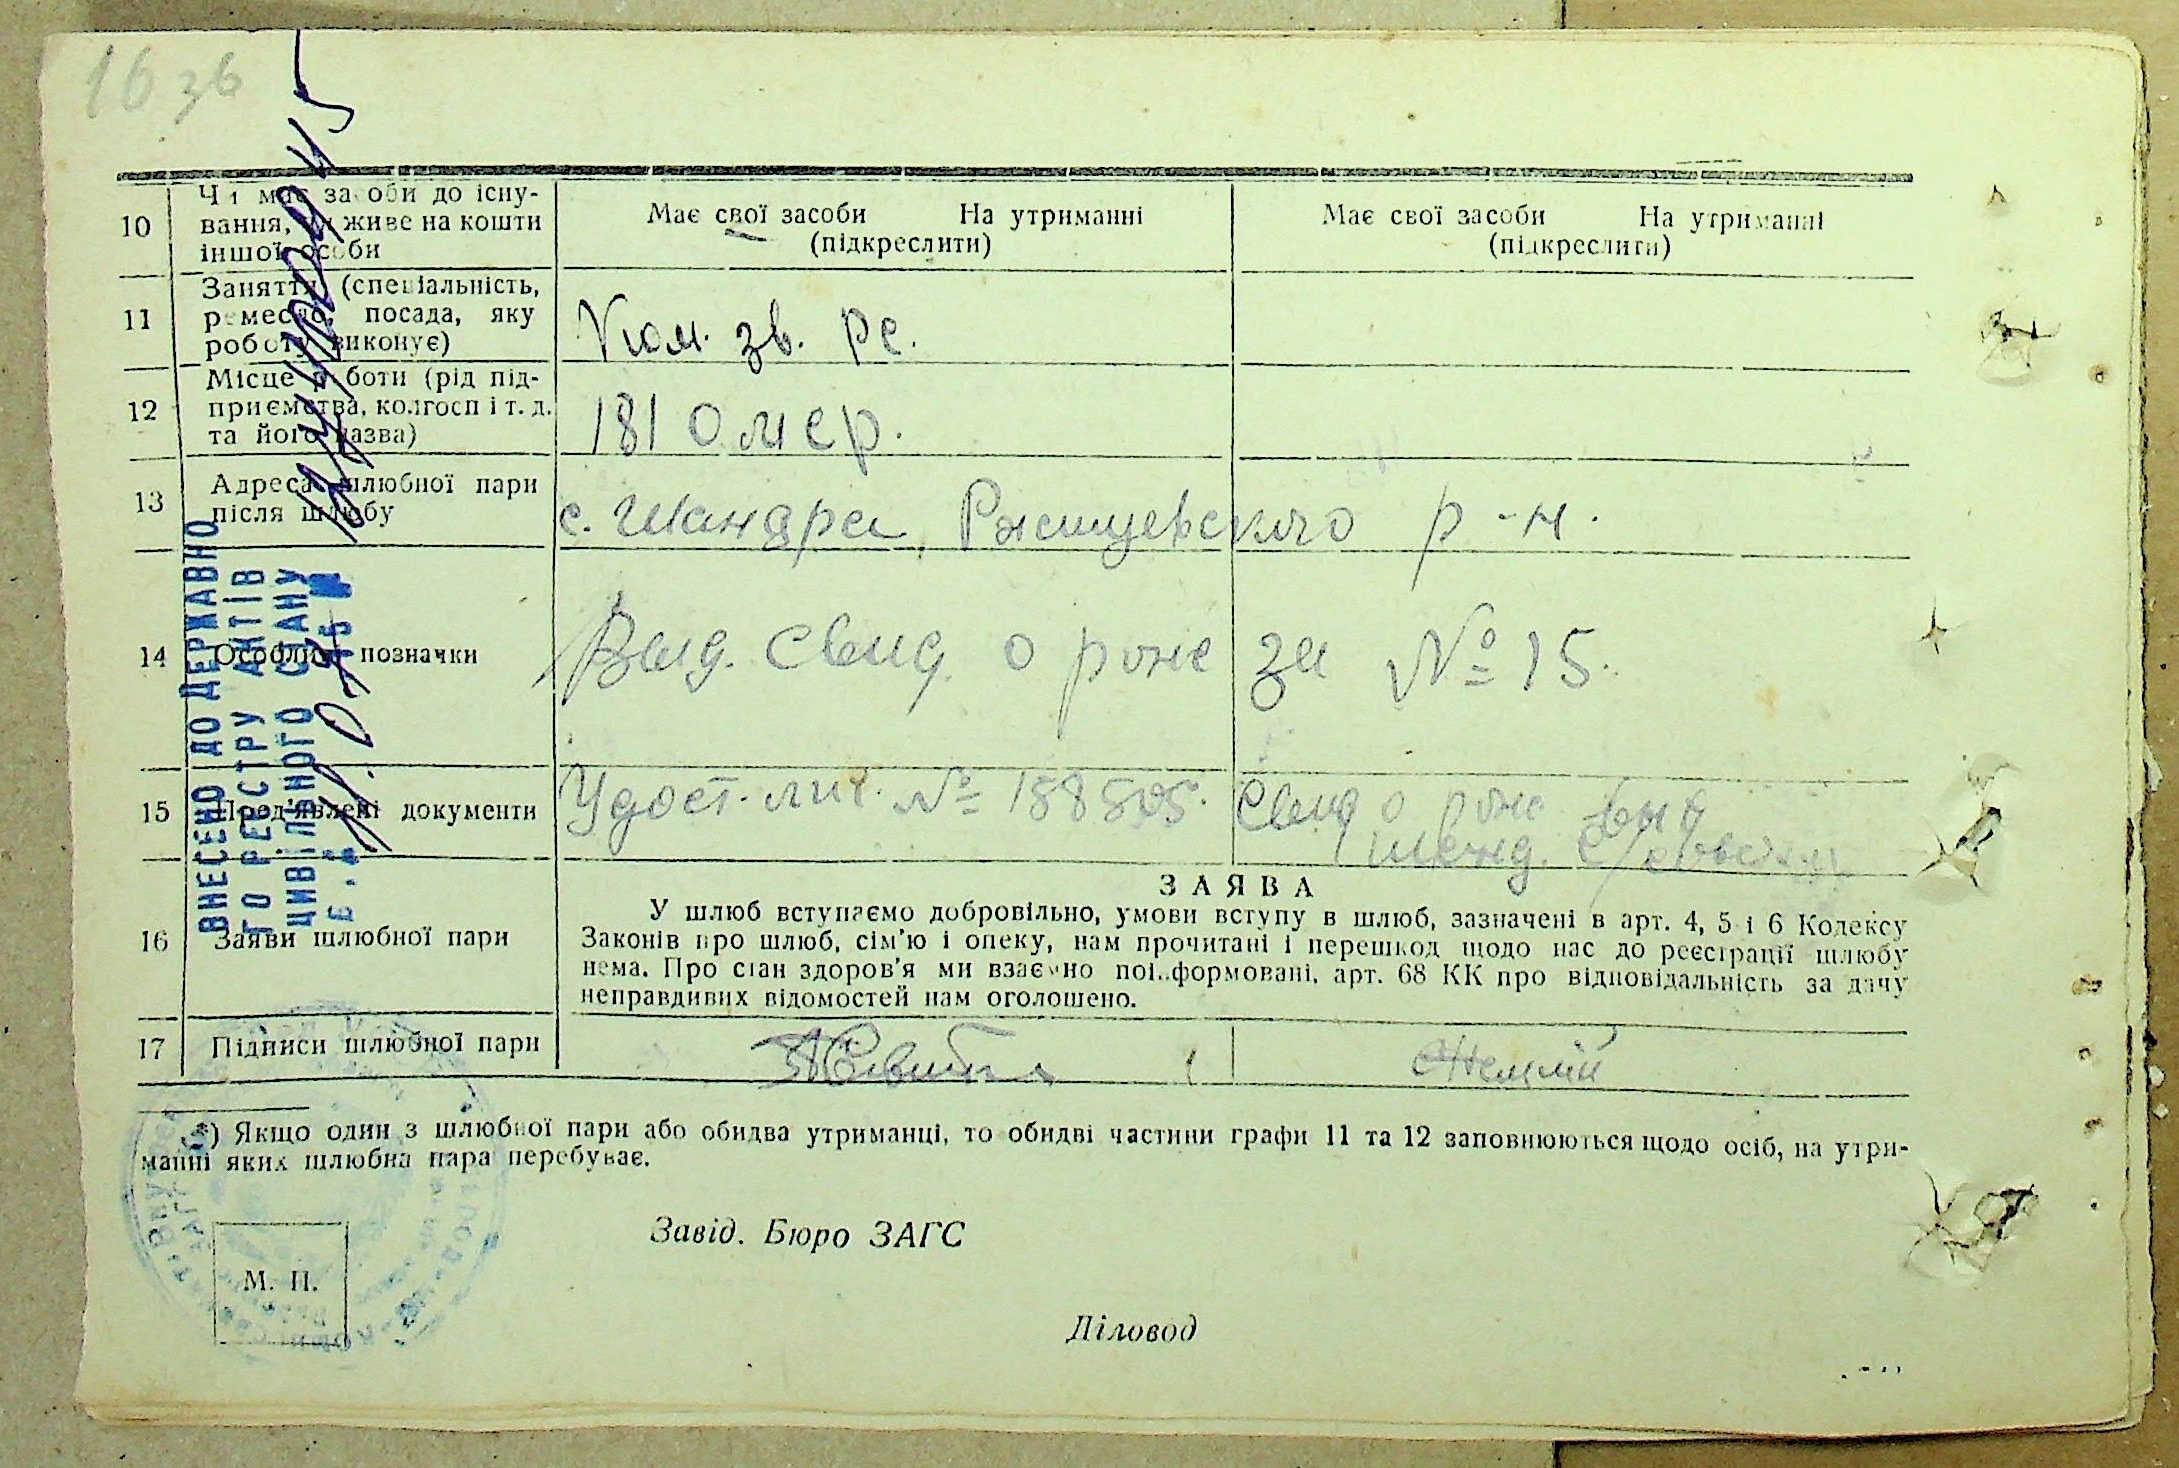 16 зв
10
Чи має засоби до існу-
вання, чи живе на кошти
іншої особи
Має свої засоби На утриманні
(підкреслити)
Має свої засоби На утриманні
(підкреслити)
11
Заняття (спеціальність,
ремесло, посада, яку
роботу виконує)
Ком. зв. рс.
12
Місце роботи (рід під-
приємства, колгосп і т. д.
та його назва)
181 о.м с р.
13
Адреса шлюбної пари
після шлюбу
с. Шандра, Ржищевского р-н.
14
Особливі позначки
Выд. свид. о рож за № 15.
15
Пред'явлені документи
Удост. лич. № 158505.
Свид о рож
16
Заяви шлюбної пари
ЗАЯВА
У шлюб вступаємо добровільно, умови вступу в шлюб, зазначені в арт. 4, 5 і 6 Кодексу
Законів про шлюб, сім'ю і опеку, нам прочитані і перешкод щодо нас до реєстрації шлюбу
нема. Про стан здоров'я ми взаємно поінформовані, арт. 68 КК про відповідальність за дачу
неправдивих відомостей нам оголошено.
17
Підписи шлюбної пари
*) Якщо один з шлюбної пари або обидва утриманці, то обидві частини графи 11 та 12 заповнюються щодо осіб, на утри-
манні яких шлюбна пара перебуває.
Завід. Бюро ЗАГС
М. П.
Діловод
ВНЕСЕНО ДО ДЕРЖАВНО
ГО РЕЄСТРУ АКТІВ
ЦИВІЛЬНОГО СТАНУ